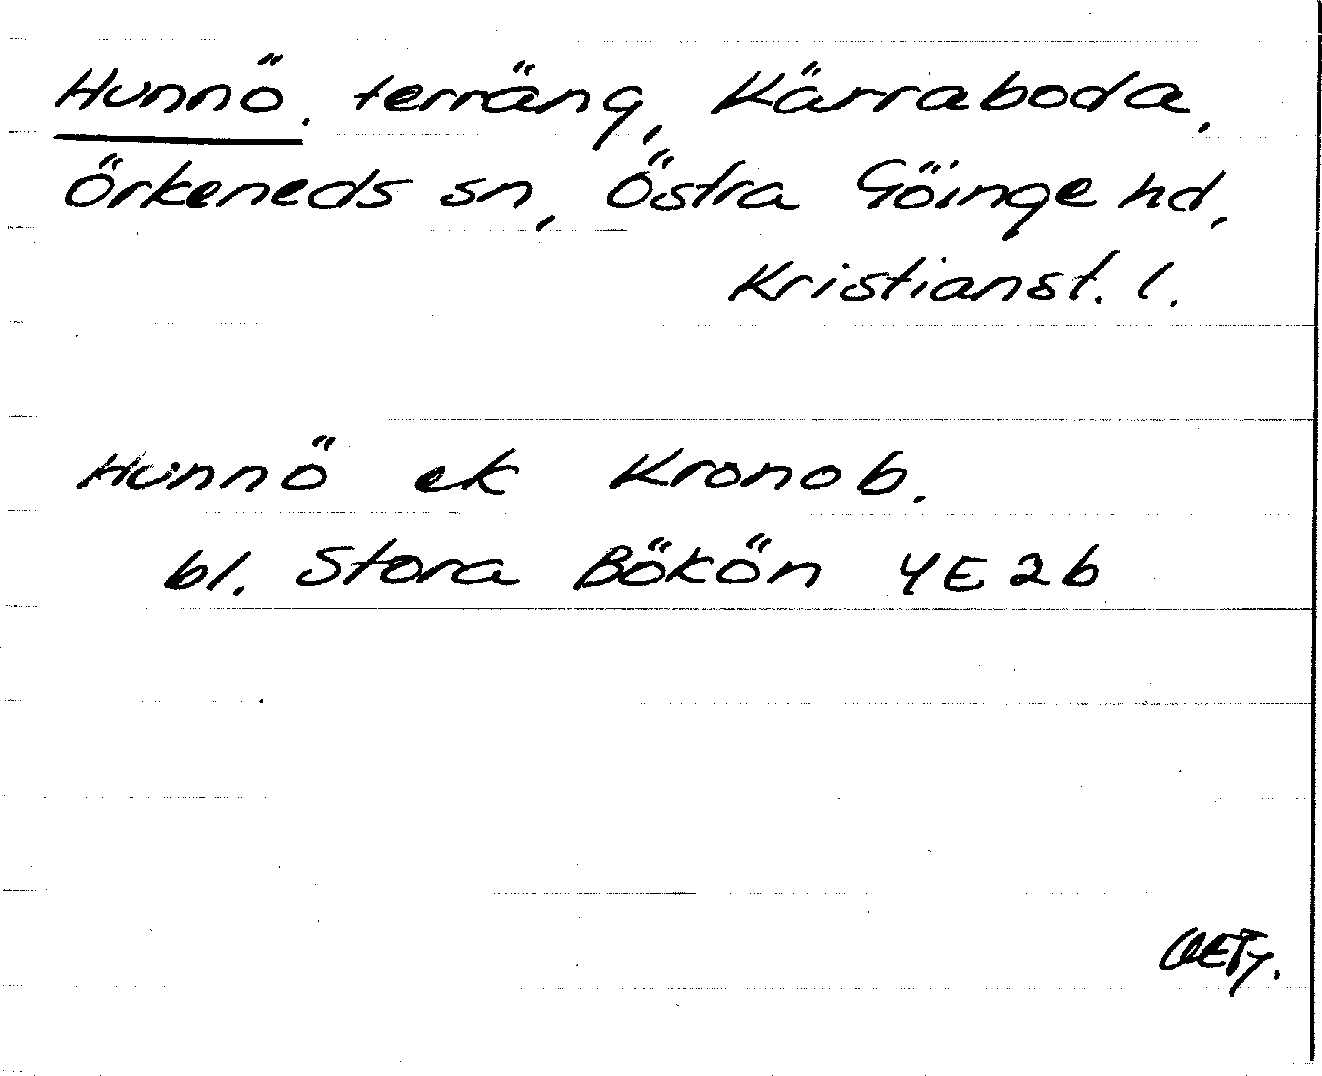 Hunnö, terräng, Kärraboda,
Örkeneds sn, Östra Göinge hd,
Kristianst. l.
Hunnö ek Kronob.
bl. Stora Bökön 4E2b